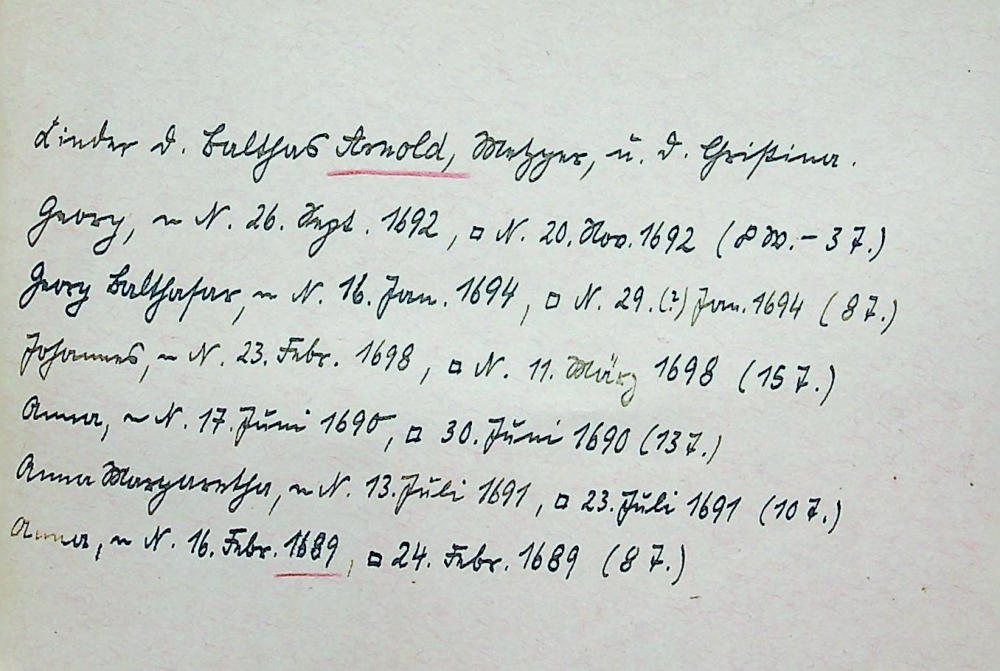 Kinder d. Balthas Arnold, Metzger, u. d. Christina.
Georg, ~ N. 26. Sept. 1692, □ N. 20. Nov. 1692 (8 W. - 3 T.)
Georg Balthasar, ~ N. 16. Jan. 1694, □ N. 29.(?) Jan. 1694 (8 T.)
Johannes, ~ N. 23. Febr. 1698, □ N. 11. März 1698 (15 T.)
Anna, ~ N. 17. Juni 1690, □ 30. Juni 1690 (13 T.)
Anna Margaretha, ~ N. 13. Juli 1691, □ 23. Juli 1691 (10 T.)
Anna, ~ N. 16. Febr. 1689, □ 24. Febr. 1689 (8 T.)